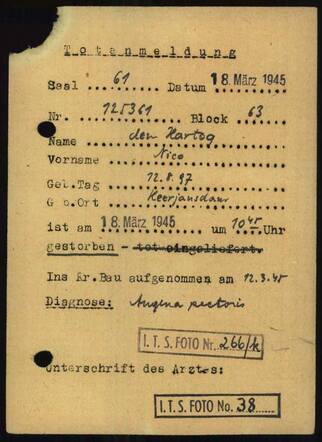 Totanmeldung
Saal 61 Datum 18. März 1945
Nr. 125361 Block 63
Name den Hartog
Vorname Nico
Geb.Tag 12.8.97
Geb.Ort Heerjansdam
ist am 18. März 1945 um 10 45 Uhr
gestorben - tot eingeliefert.
Ins Kr.Bau aufgenommen am 12.3.45
Diagnose: Angina pectoris
I.T.S. FOTO Nr. 266/k
Unterschrift des Arztes:
I.T.S. FOTO No. 38